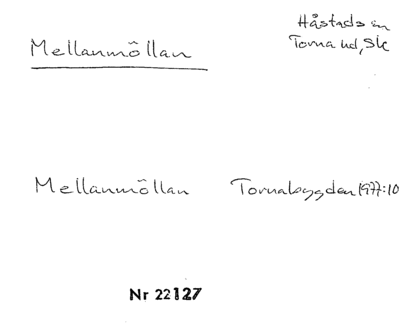 Mellanmöllan
Håstads sn
Torna hd, Sk
Mellanmöllan Tornabygden 1977:10
Nr 22127